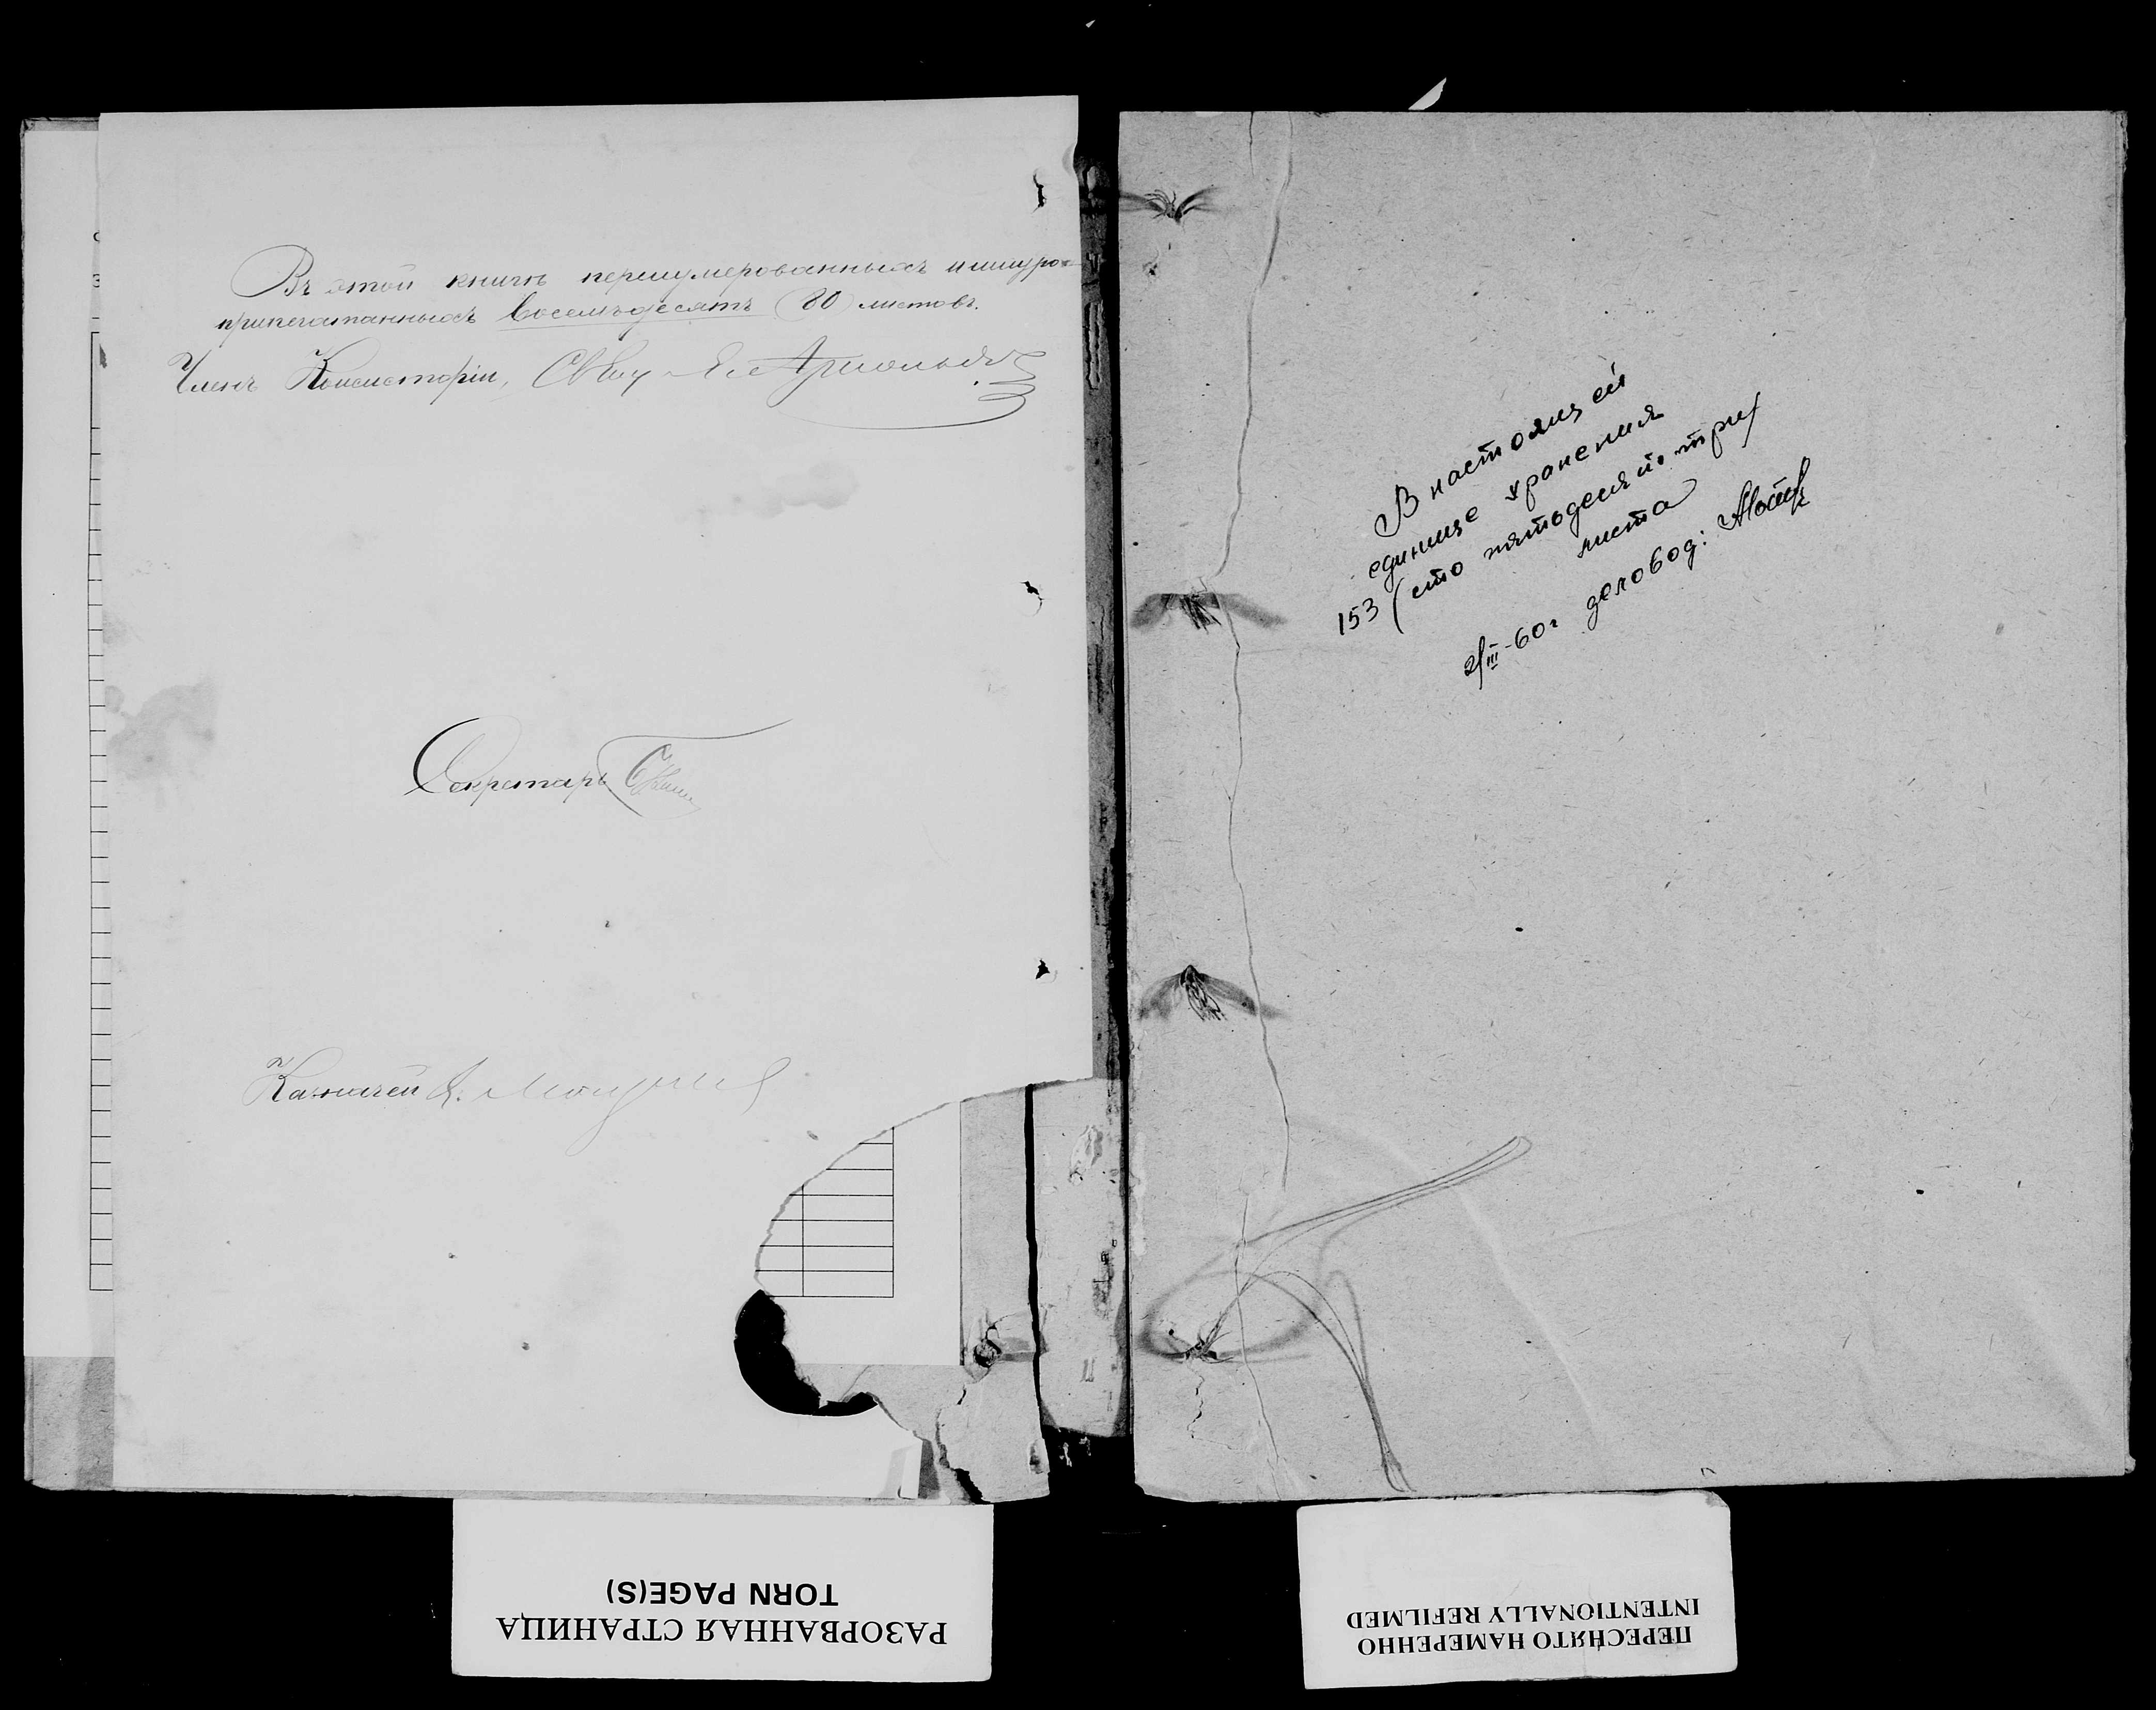 Въ этой книгѣ перенумерованныхъ и шнуро-
припечатанныхъ восемьдесятъ (80) листовъ.
Членъ Консисторіи, Свящ.
Секретарь
Казначей А.
В настоящей
единице хранения
153 (сто пятьдесят три)
листа
2/III-60г деловод:
РАЗОРВАННАЯ СТРАНИЦА
TORN PAGE(S)
ПЕРЕСНЯТО НАМЕРЕННО
INTENTIONALLY REFILMED